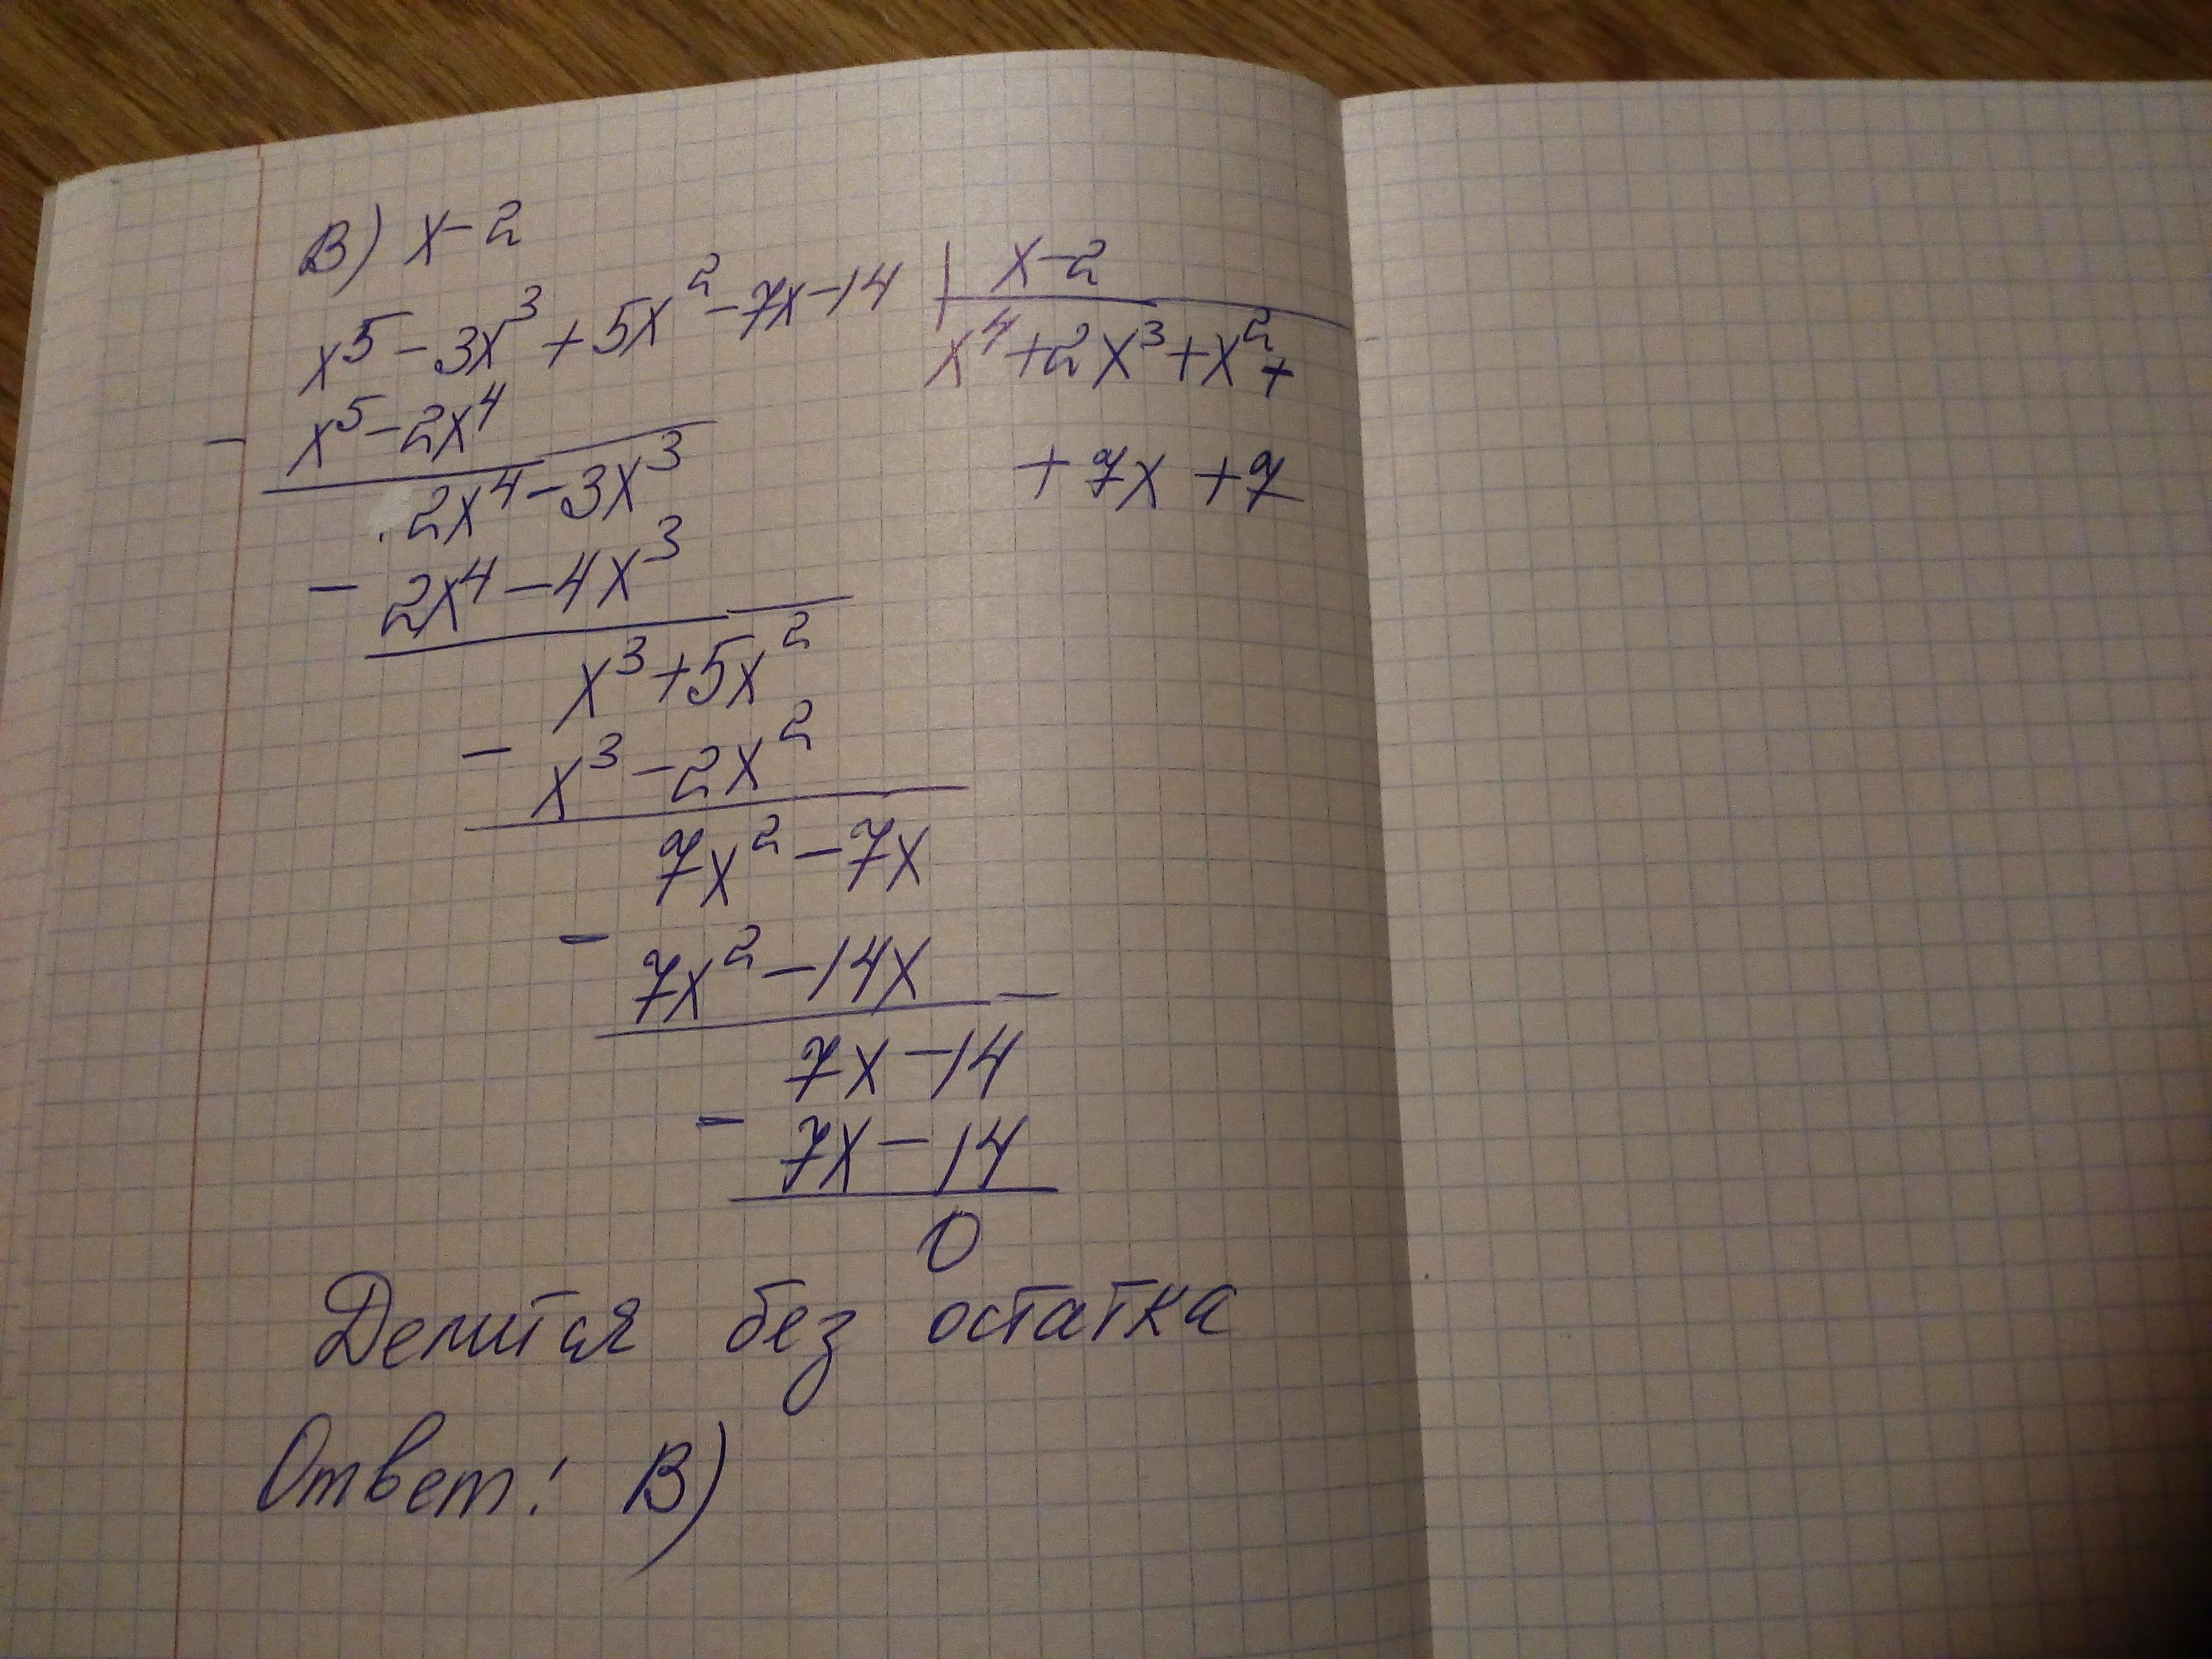 В) x-2
x⁵-3x³+5x²-7x-14 | x-2
x⁴+2x³+x²+
- x⁵-2x⁴
2x⁴-3x³
+7x+7
- 2x⁴-4x³
x³+5x²
- x³-2x²
7x²-7x
- 7x²-14x
7x-14
- 7x-14
0
Делится без остатка
Ответ: В)